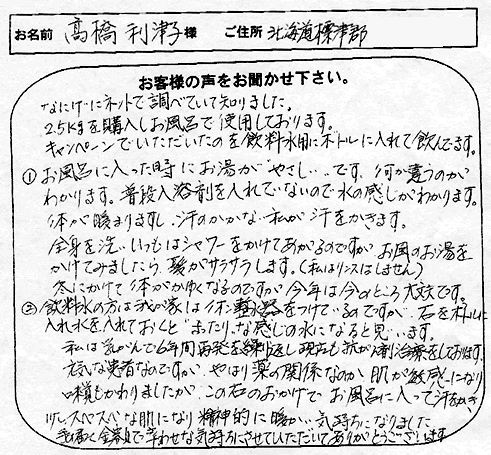 お名前 高橋 利津子 様 ご住所 北海道標津郡
お客様の声をお聞かせ下さい。
なにげにネットで調べていて知りました。
2.5Kgを購入しお風呂で使用しております。
キャンペーンでいただいたのを飲料水用にボトルに入れて飲んでます。
①お風呂に入った時にお湯が“やさしい”です、何が違うのかが
わかります。普段入浴剤を入れていないので水の感じがわかります。
体が暖まりますし、汗のかかない私が汗をかきます。
全身を洗いいつもはシャワーをかけてあがるのですがお風呂のお湯を
かけてみましたら、髪がサラサラします。（私はリンスはしません）
冬にかけて体がかゆくなるのですが今年は今のところ大丈夫です。
②飲料水の方は我が家は浄水器をつけているのですが、石をボトルに
入れ水を入れておくと“まったり”な感じの水になると思います。
私は乳がんで6年間再発を繰り返し現在も抗が剤治療をしております。
元気な患者なのですが、やはり薬の関係なのか肌が敏感になり
味もかわりましたが、この石のおかげでお風呂に入って汗をかき
スベスベな肌になり精神的に暖かい気持ちになりました
幸わせな気持ちにさせていただいてありがとうございます